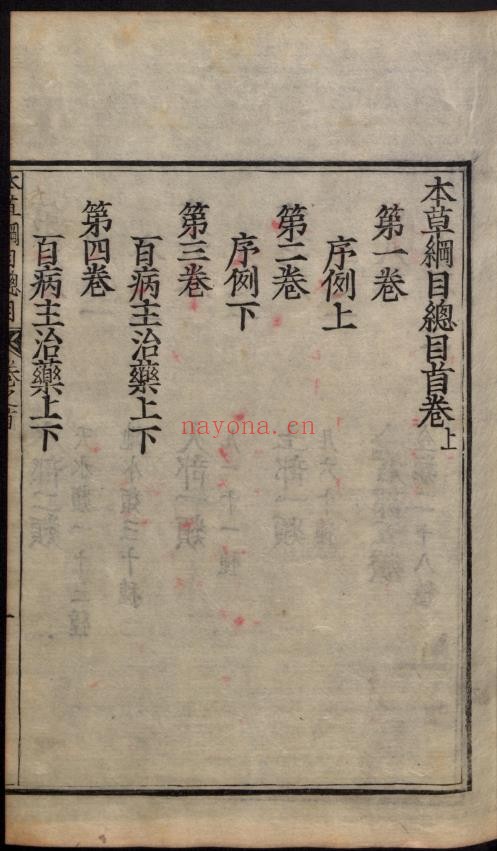 本草綱目總目首卷上
第一卷
序例上
第二卷
序例下
第三卷
百病主治藥上下
第四卷
百病主治藥上下
本草綱目總目 卷之首 一
nayona.cn